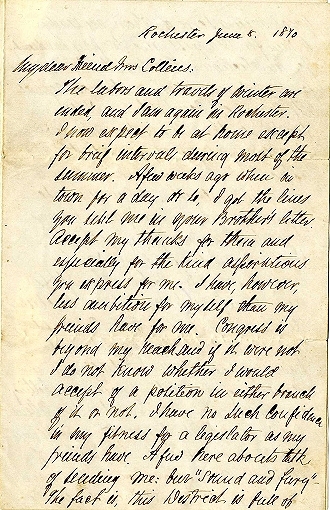 Rochester June 5. 1870
My dear Friend Mrs Collins:
The labors and travels of winter are
ended, and I am again in Rochester.
I now expect to be at home except
for brief intervals during most of the
summer. A few weeks ago when in
town for a day or so, I got the lines
you sent me in your Brother's letter
Accept my thanks for them and
especially for the kind
you express for me. I have, however,
less ambition for myself than my
friends have for me. Congress is
beyond my reach and if it were not
I do not know whether I would
accept of a position in either branch
of it or not. I have no such confidence
in my fitness for a legislator as my
friends have. A few here abouts talk
of sending me: but "Sound and fury"
The fact is, this District is full of